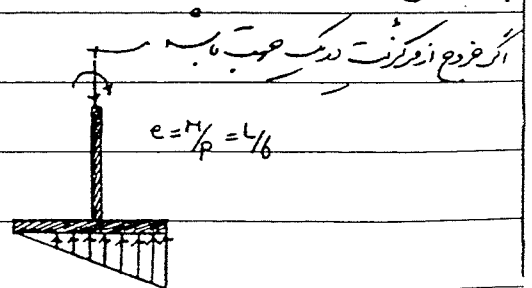 اگر خروج از مرکزیت در یک جهت باشد
e = M/P = L/6